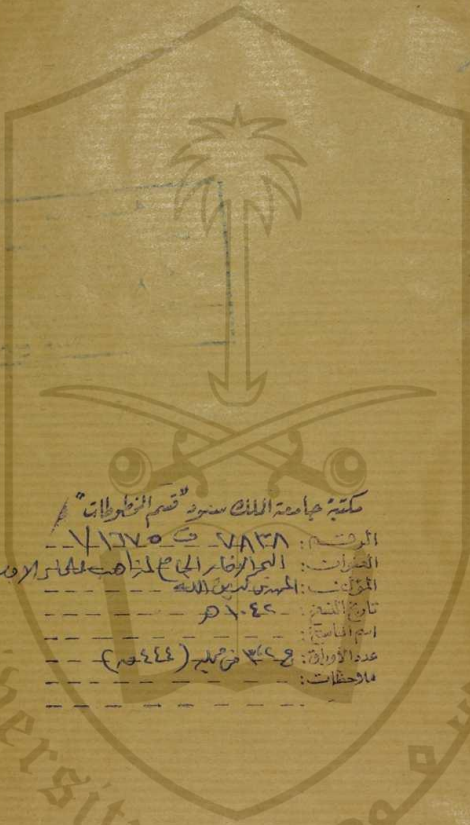 مكتبة جامعة الملك سعود "قسم المخطوطات"
الرقم: ٧٨٣٨ ف ١٦٧٥/٧
العنوان: البحر الزخار الجامع لمذاهب علماء
المؤلف: المهدي لدين الله
تاريخ النسخ: ١٠٤٢ هـ
اسم الناسخ:
عدد الأوراق:
ملاحظات: